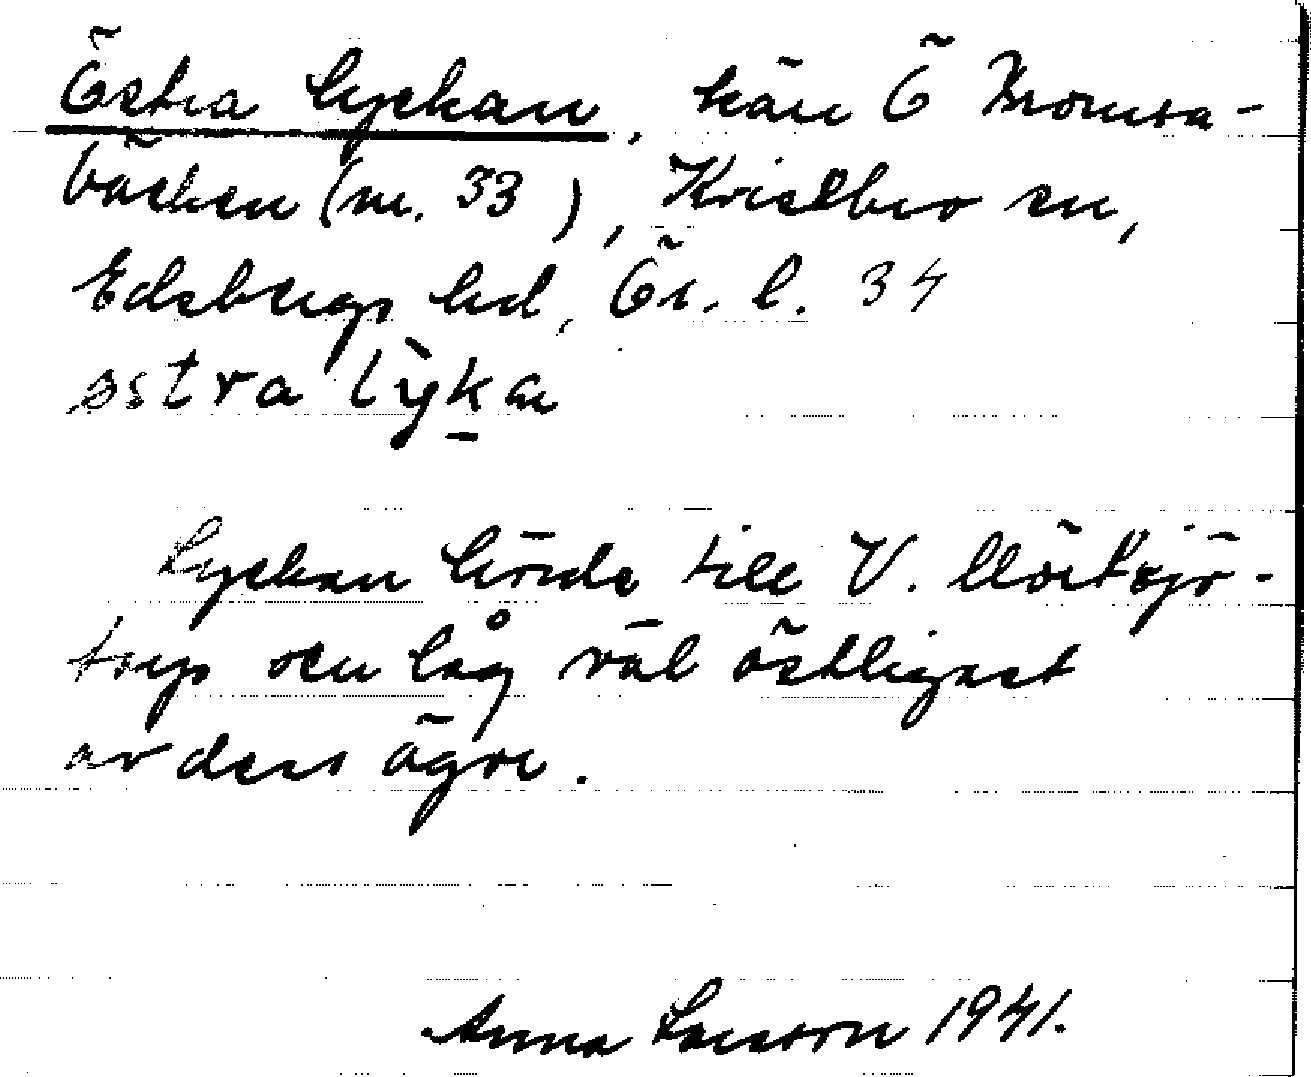 Östra lyckan, kän Ö Momsa-
bäcken (nr. 33), Kvistbro sn,
Edsbergs hd, Ör. l. 34
østra lỳkan
Lyckan hörde till V. Mörtsjö-
torp och låg väl östligast
av dess ägor.
Anna Larsson 1941.